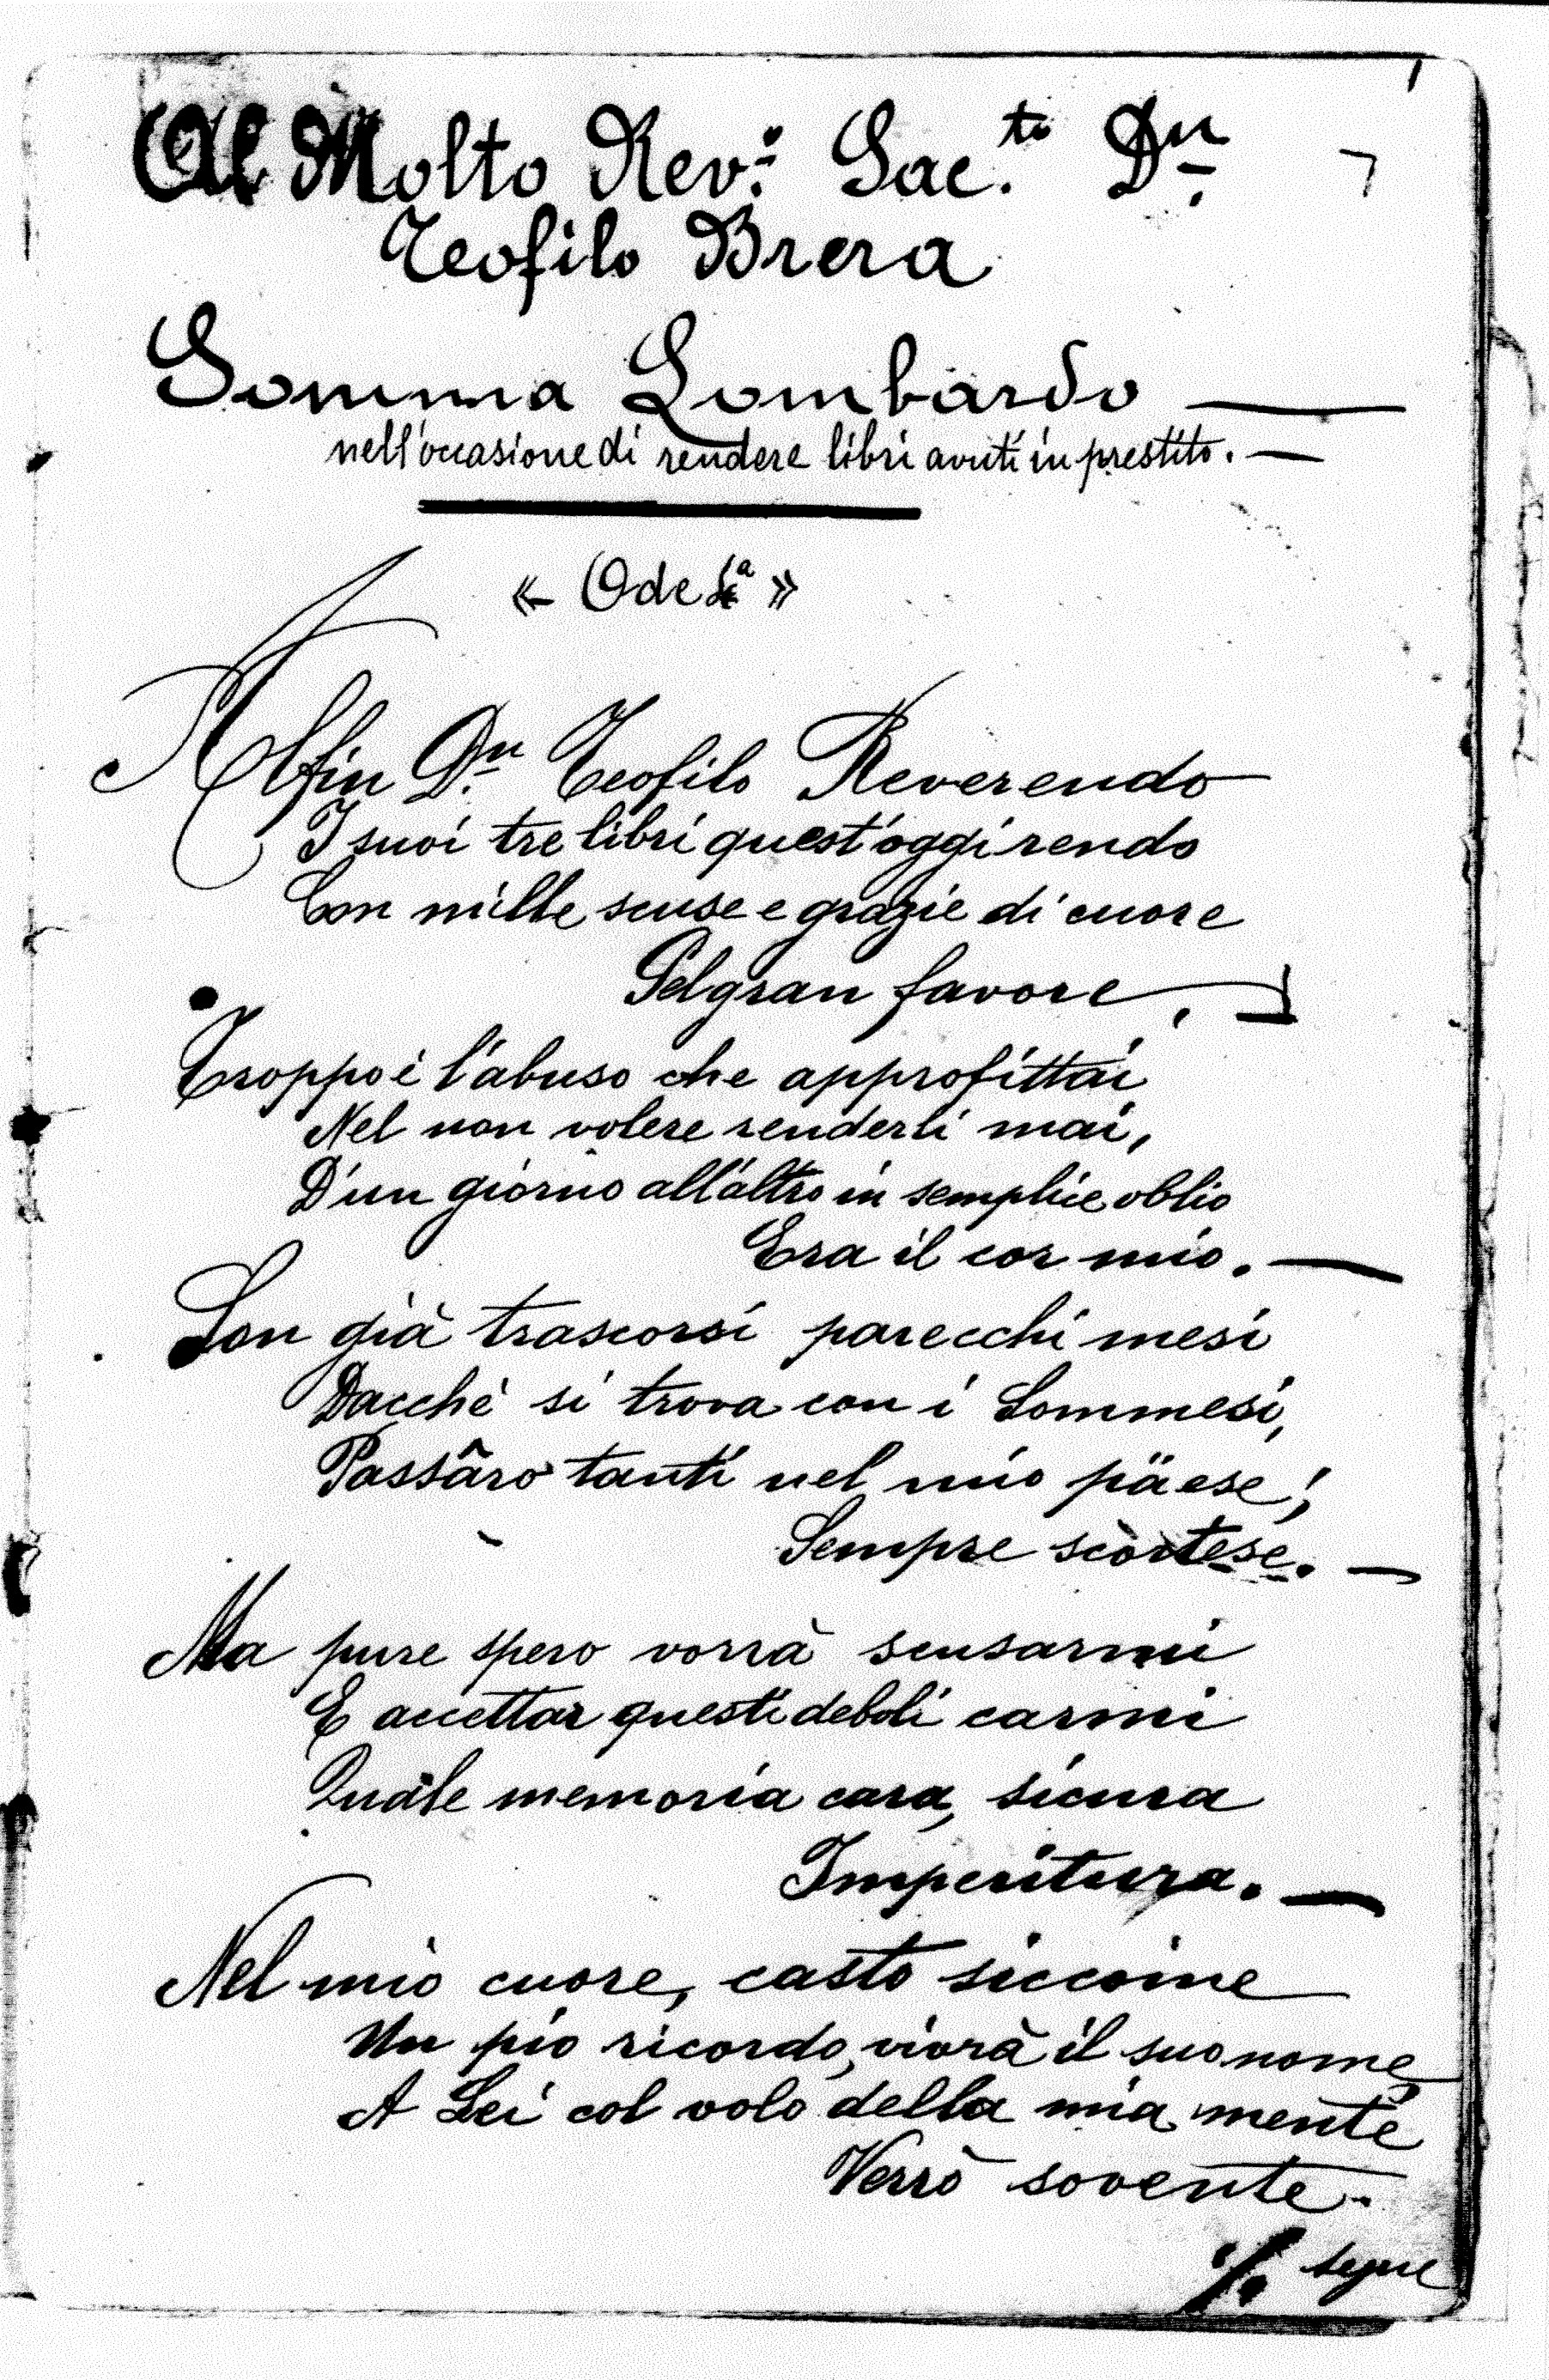 Al Molto Rev.º Sac.te Dn.
7
Teofilo Brera
Somma Lombardo —
nell'occasione di rendere libri avuti in prestito. —
« Ode »
Alfin Dn. Teofilo Reverendo
I suoi tre libri quest'oggi rendo
Con mille scuse e grazie di cuore
Pel gran favore,
Troppo è l'abuso che approfittai
Nel non volere renderli mai,
D'un giorno all'altro in semplice oblio
Era il cor mio. —
Son già trascorsi parecchi mesi
Dacchè si trova con i Sommesi,
Passâro tanti nel mio päese;
Sempre scòrtese. —
Ma pure spero vorrà scusarmi
E accettar questi deboli carmi
Quale memoria cara, sicura
Imperitura. —
Nel mio cuore, casto siccome
Un pio ricordo, vivrà il suo nome,
A Lei col volo della mia mente
Verrò sovente.
·/. segue